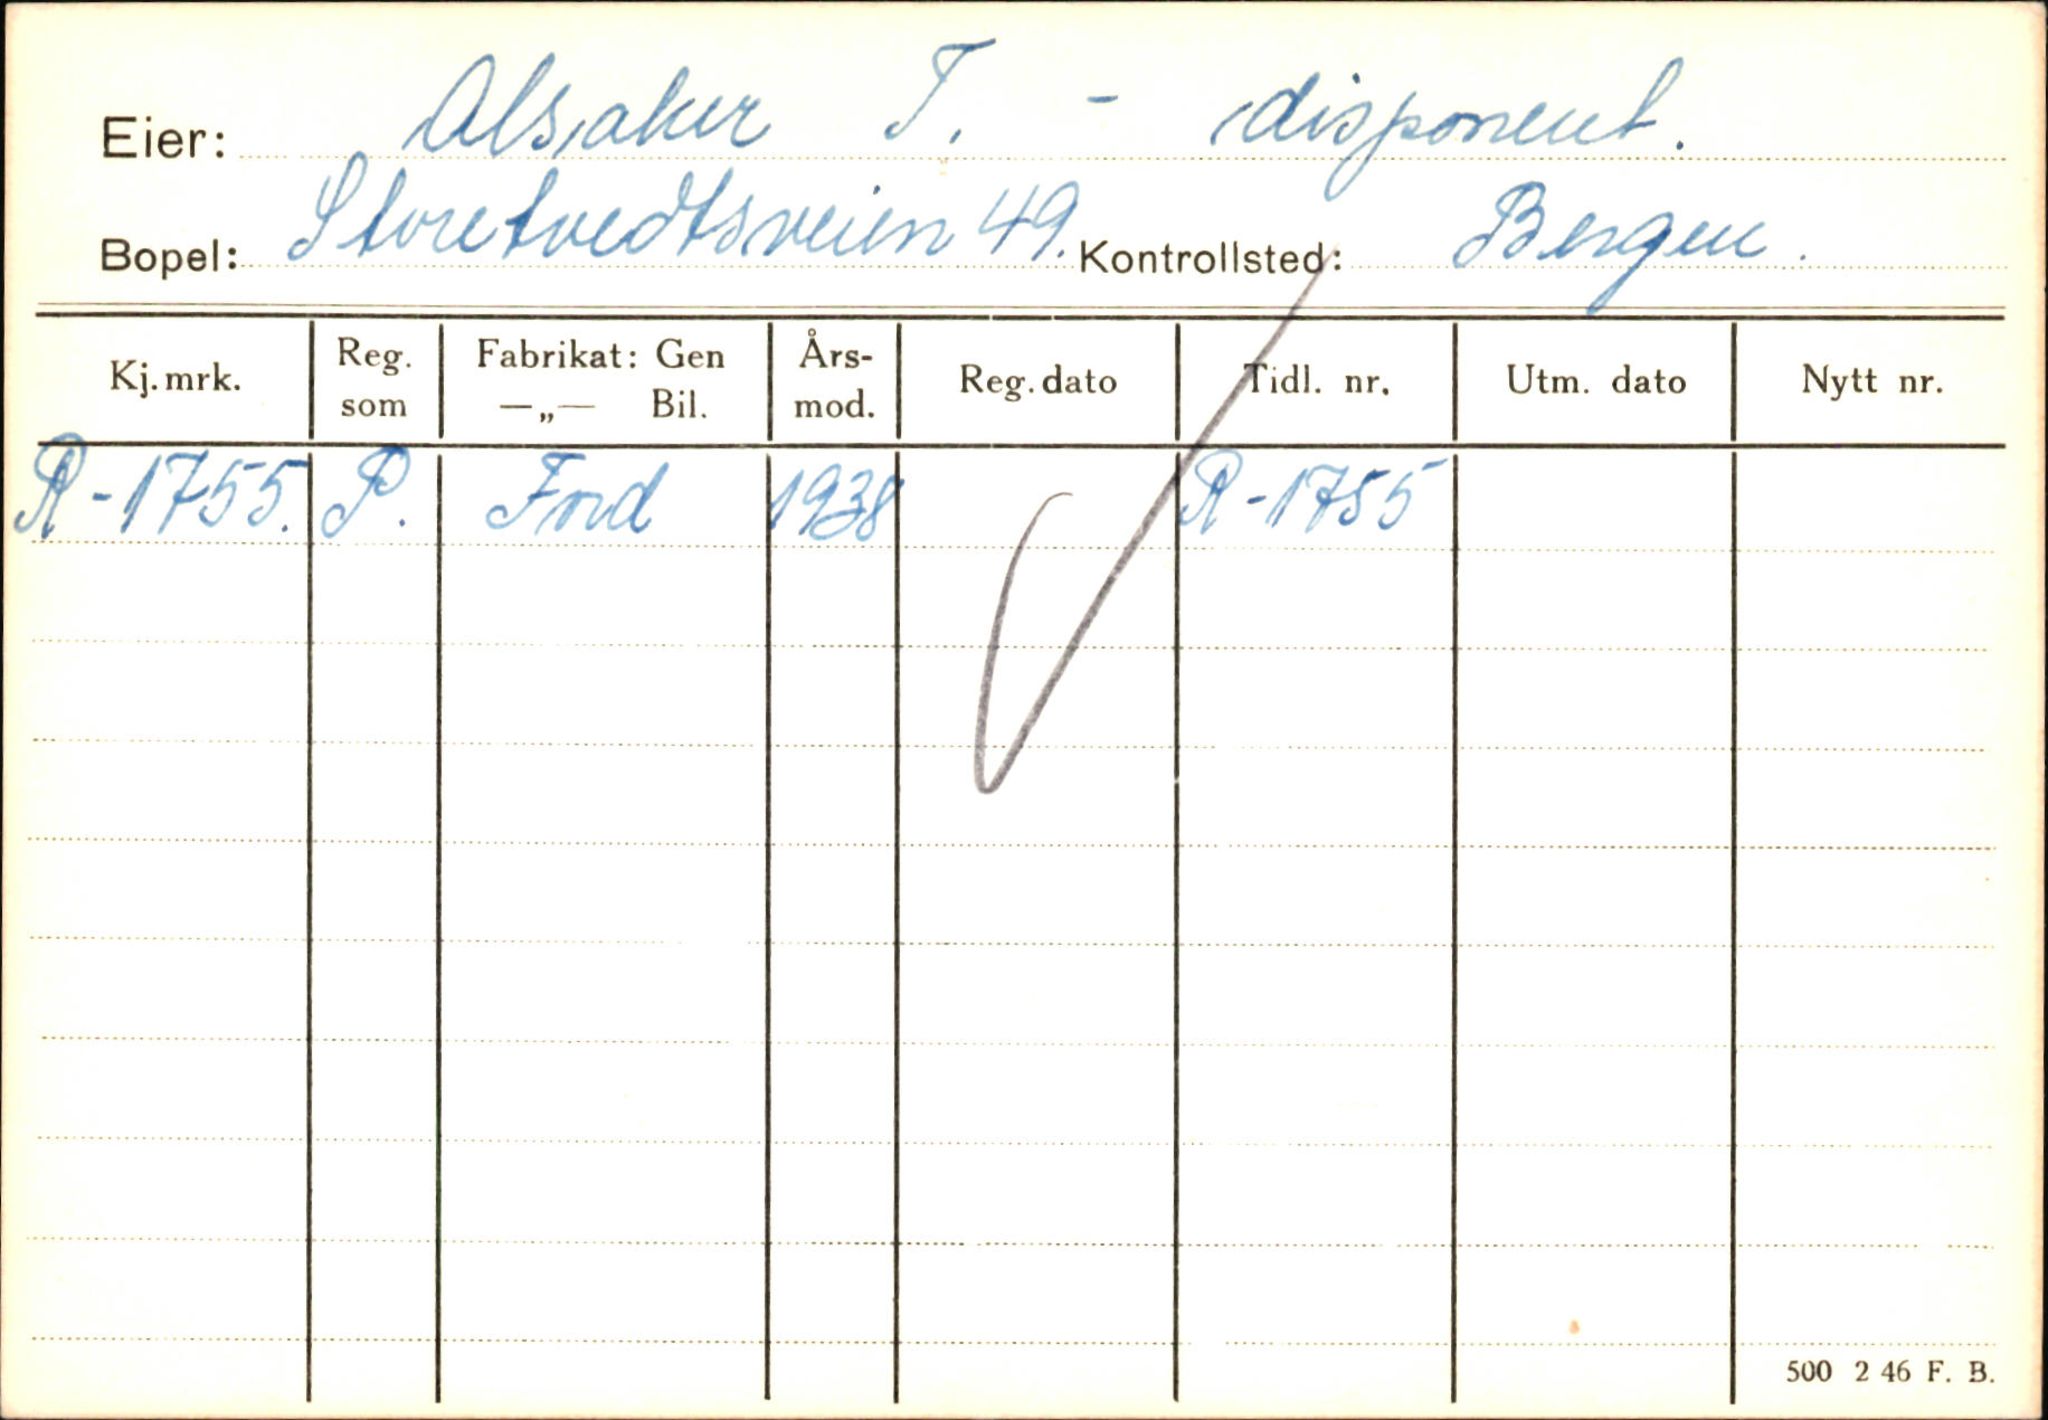 Eier: Alsaker T. - disponent.
Bopel: Storetvedtsveien 49. Kontrollsted: Bergen.
Kj.mrk. Reg. som Fabrikat: Gen —„— Bil. Års-mod. Reg. dato Tidl. nr. Utm. dato Nytt nr.
R-1755. P. Ford 1938 R-1755
500 2 46 F. B.